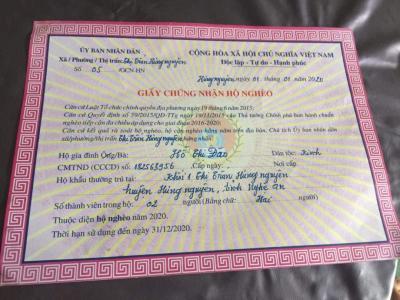 ỦY BAN NHÂN DÂN
Xã/Phường/Thị trấn: Thị Trấn Hưng nguyên
Số 05 /GCN-HN
CỘNG HÒA XÃ HỘI CHỦ NGHĨA VIỆT NAM
Độc lập - Tự do - Hạnh phúc
Hưng nguyên, ngày 01 tháng 01
GIẤY CHỨNG NHẬN HỘ NGHÈO
Căn cứ Luật Tổ chức chính quyền địa phương ngày 19 tháng 6 năm 2015;
Căn cứ Quyết định số 59/2015/QĐ-TTg ngày 19/11/2015 của Thủ tướng Chính phủ ban hành
chuẩn nghèo tiếp cận đa chiều áp dụng cho giai đoạn 2016-2020;
Căn cứ kết quả rà soát hộ nghèo, hộ cận nghèo hằng năm trên địa bàn, Chủ tịch Ủy ban nhân dân
xã/phường/thị trấn Thị Trấn Hưng nguyên chứng nhận:
Hộ gia đình Ông/Bà: Hồ Thị Đào Dân tộc: Kinh
CMTND (CCCD) số: 182568956 Nơi cấp
Hộ khẩu thường trú tại: Khối 1 Thị Trấn Hưng nguyên
huyện Hưng nguyên, tỉnh Nghệ an
Số thành viên trong hộ: 02 người (Bằng chữ: Hai người)
Thuộc diện hộ nghèo năm 2020.
Thời hạn sử dụng đến ngày 31/12/2020.